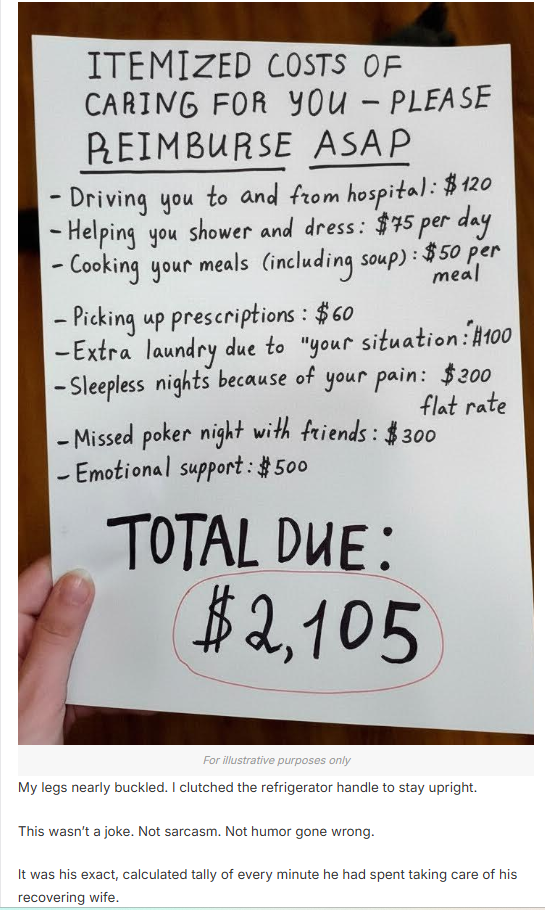 ITEMIZED COSTS OF
CARING FOR YOU – PLEASE
REIMBURSE ASAP
- Driving you to and from hospital: $120
- Helping you shower and dress: $75 per day
- Cooking your meals (including soup): $50 per
meal
- Picking up prescriptions: $60
- Extra laundry due to "your situation:" $100
- Sleepless nights because of your pain: $300
flat rate
- Missed poker night with friends: $300
- Emotional support: $500
TOTAL DUE:
$2,105
For illustrative purposes only
My legs nearly buckled. I clutched the refrigerator handle to stay upright.
This wasn’t a joke. Not sarcasm. Not humor gone wrong.
It was his exact, calculated tally of every minute he had spent taking care of his
recovering wife.